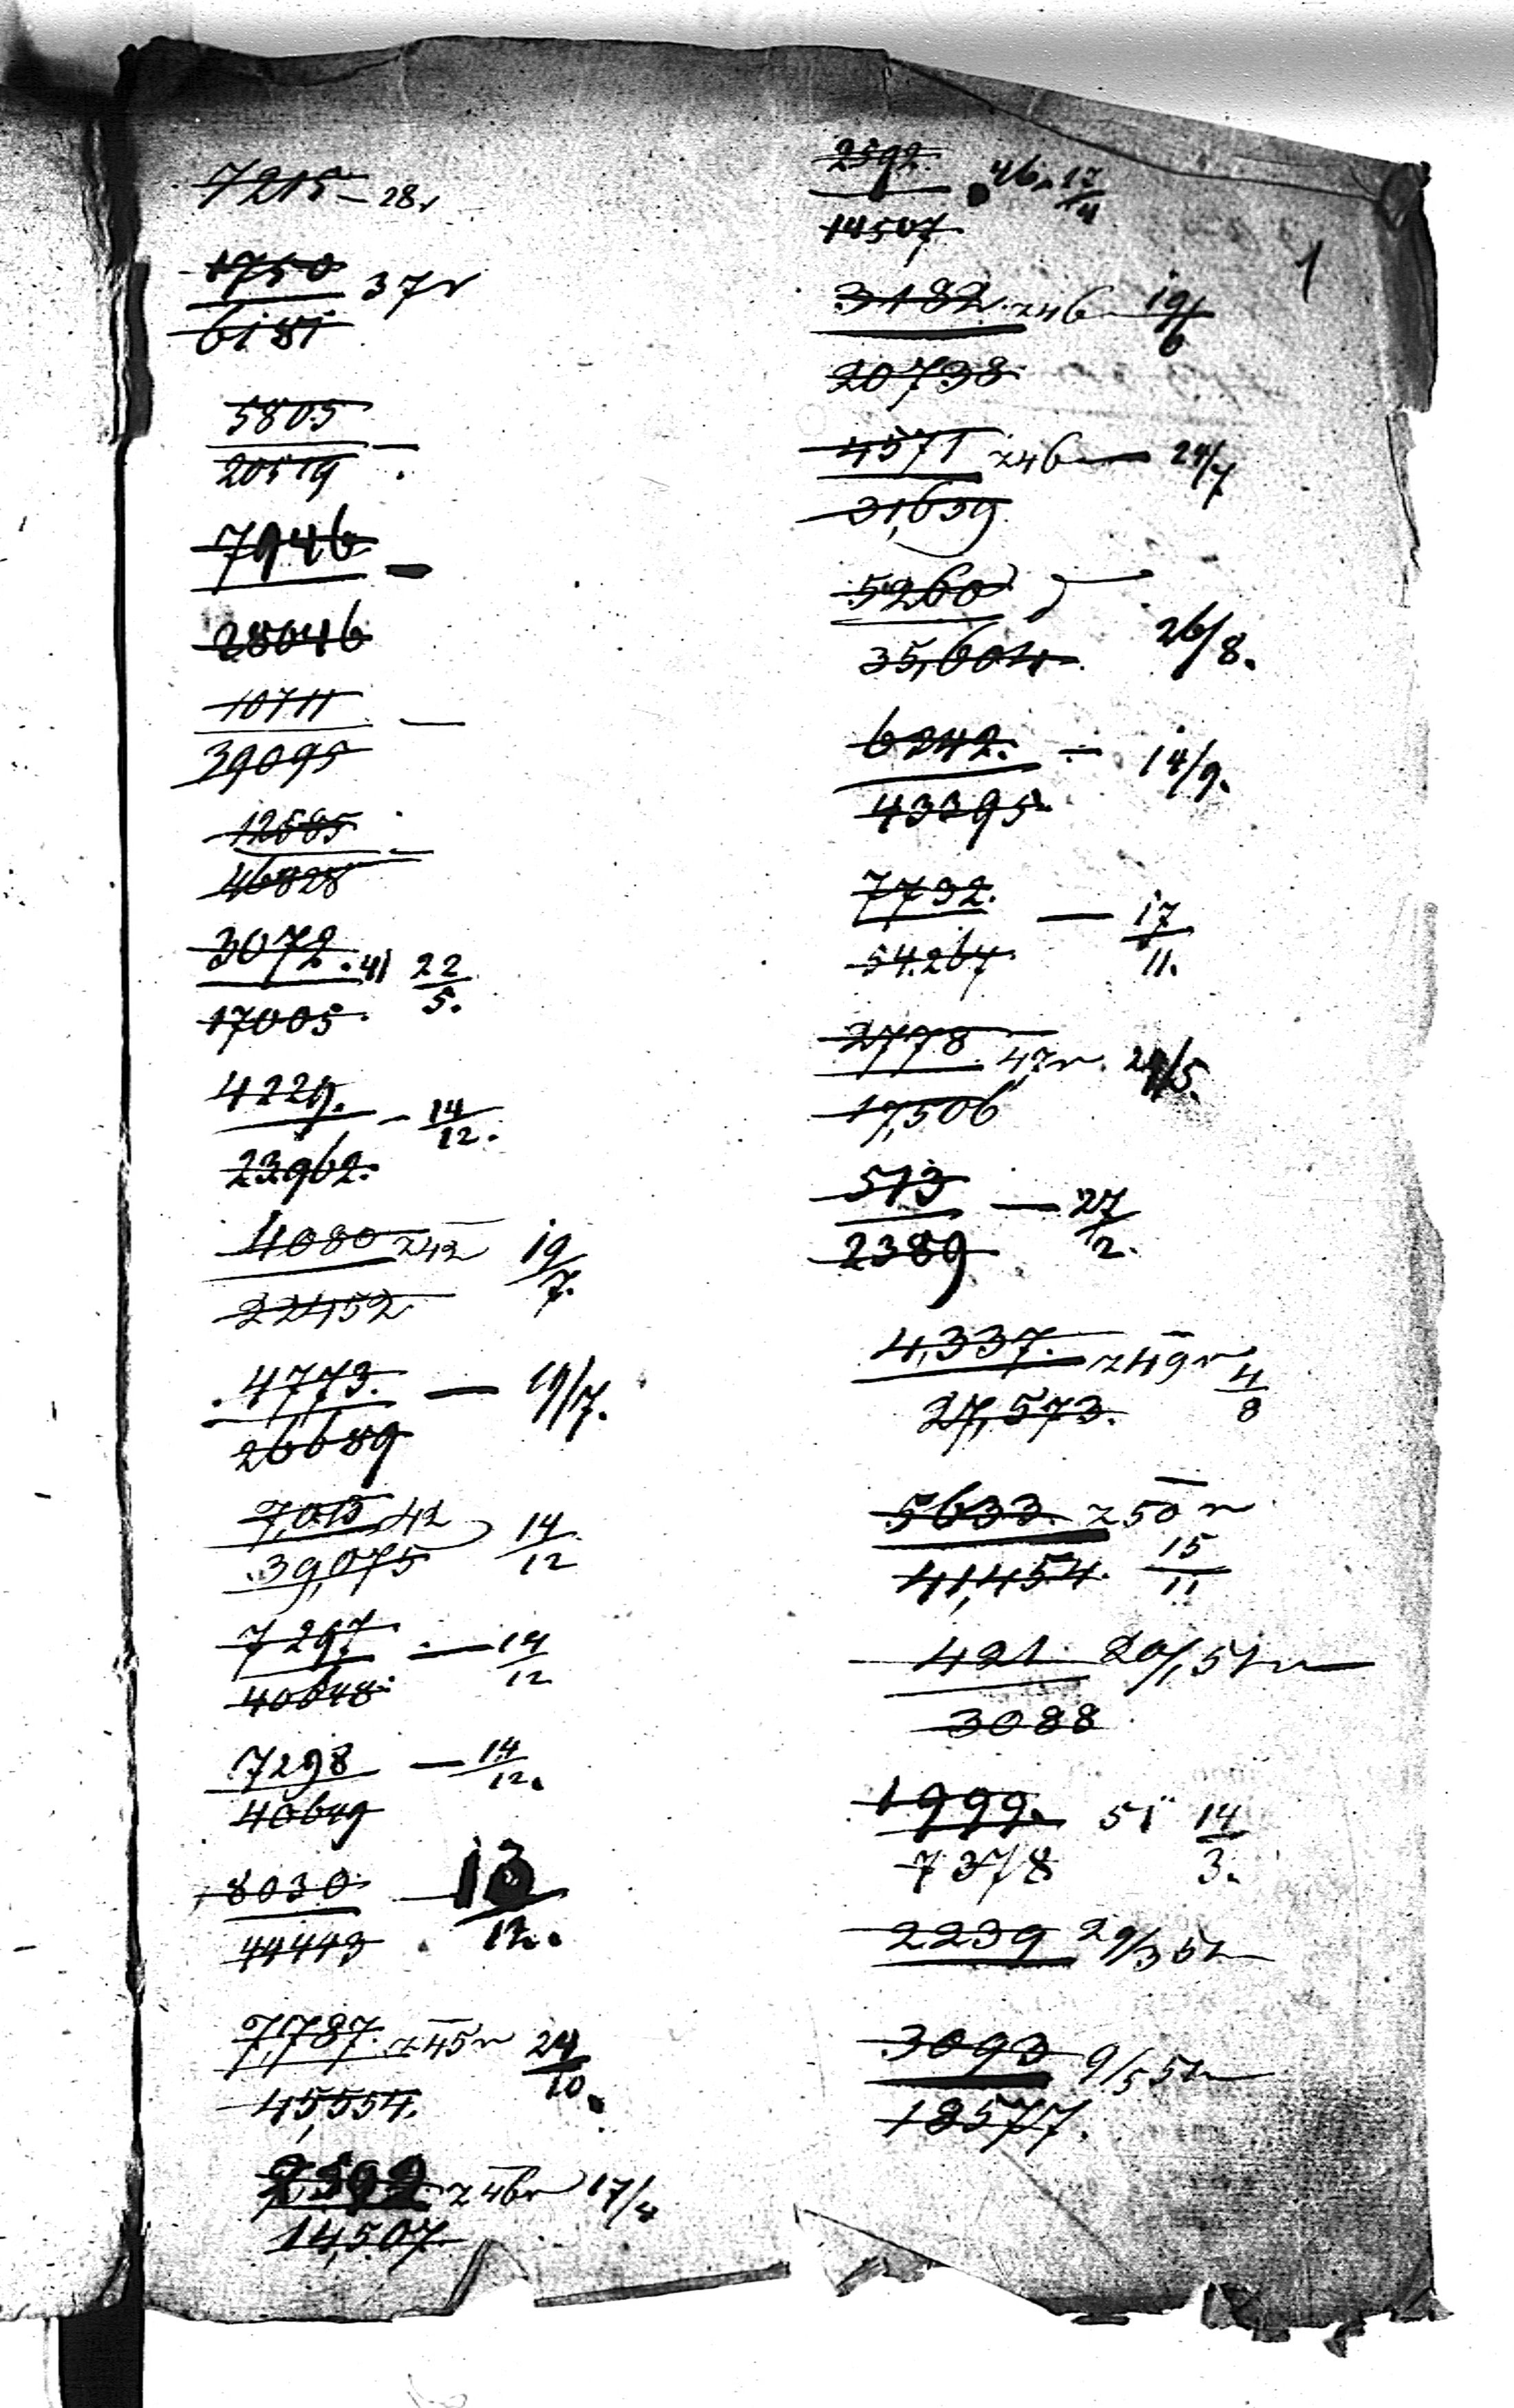 7215 – 28 r
1750
37 r
6181
5805 –
20519
7946 –
28046
10711 –
39095
12585 –
46828
3072. 41 22/5.
17005.
4229. – 14/12.
23962.
4080 z 42 19/7.
22452
4773. – 19/7.
26689
7,015 42 14/12
39,075
7297. – 14/12
40648.
7298 – 14/12.
40649
8030 13/12.
44443
7,787. z 45 r 24/10.
45,554.
2592 z 46 r 17/4
14,507.
2592. 46. 17/4
14507.
1
3182. z 46 19/6
20738.
4571 z 46 – 24/7
31,659.
5260
26/8.
35,604.
6342. – 14/9.
43395.
7732. – 17/11.
54.267.
2778. 47 r. 24/5.
17,506
513 – 27/2.
2389
4,337. z 49 r 4/8
27,573.
5633. z 50 r
15/11
41,454.
421. 20/1 51 r
3088
1999. 51 14/3.
7378
2239 29/3 51
3093 9/5 51
18577.